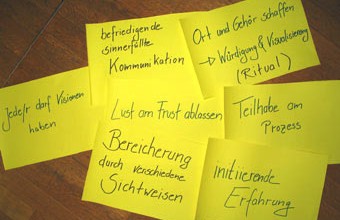 befriedigende
sinnerfüllte
Kommunikation
Ort und Gehör schaffen
→ Würdigung & Visualisierung
(Ritual)
Jede/r darf Visionen
haben
Lust am Frust ablassen
Teilhabe am
Prozess
Bereicherung
durch verschiedene
Sichtweisen
Initiierende
Erfahrung